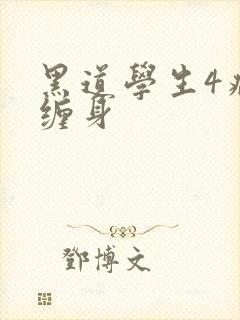 黑道學生4
缠身
鄧博文